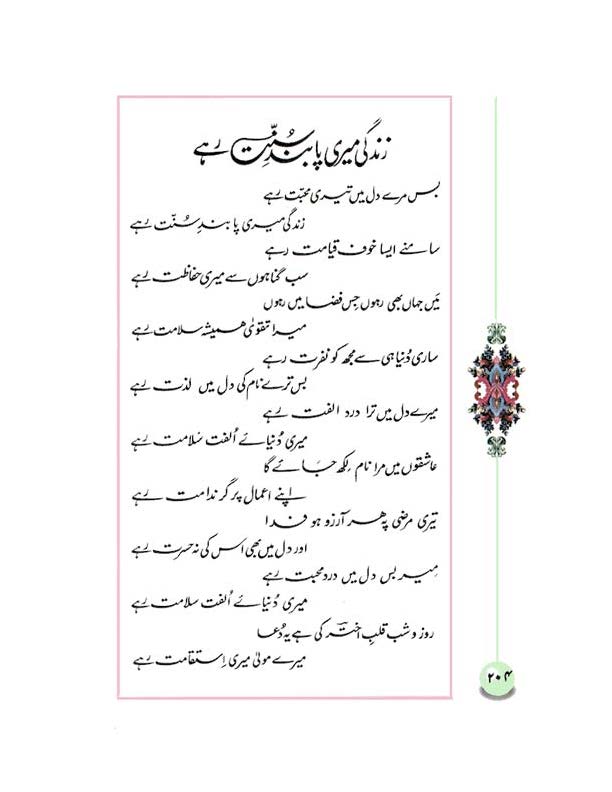 زندگی میری پابندِ سُنّت رہے
بس مرے دل میں تیری محبّت رہے
زندگی میری پابندِ سُنّت رہے
سامنے ایسا خوف قیامت رہے
سب گناہوں سے میری حفاظت رہے
مَیں جہاں بھی رہوں جِس فضا میں رہوں
میرا تقویٰ ہمیشہ سلامت رہے
ساری دُنیا ہی سے مجھ کو نفرت رہے
بس ترے نام کی دل میں لذت رہے
میرے دل میں ترا درد الفت رہے
میری دُنیائے اُلفت سَلامت رہے
عاشقوں میں مرا نام لِکھ جائے گا
اپنے اعمال پر گر ندامت رہے
تیری مرضی پہ ھر آرزو ہو فدا
اور دل میں بھی اس کی نہ حسرت رہے
میر بس دل میں درد محبت رہے
میری دُنیائے اُلفت سلامت رہے
روز و شب قلبِ اختر کی ہے یہ دُعا
میرے مولیٰ میری اِستقامت رہے
۲۰۴